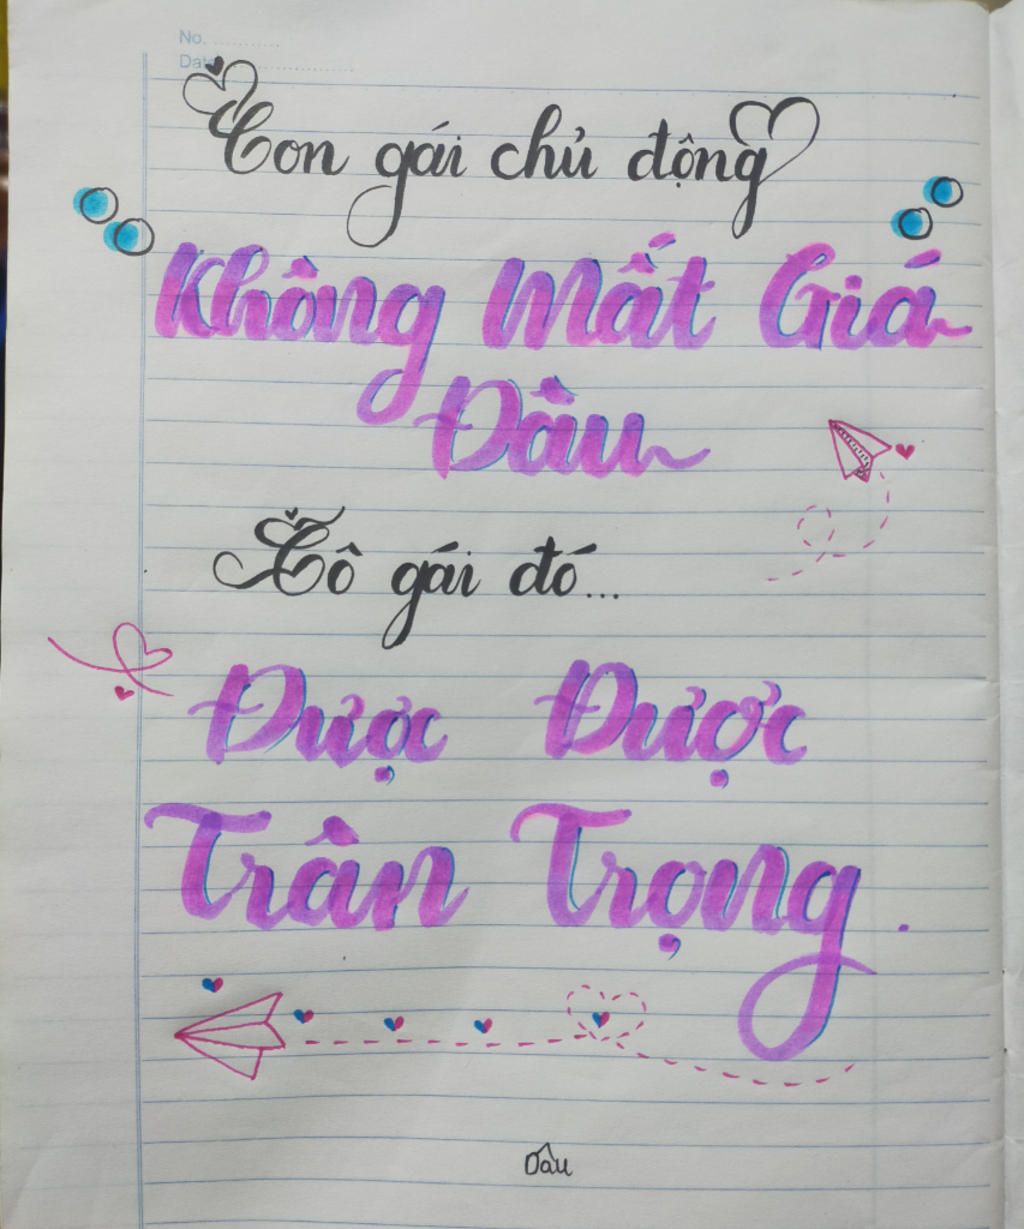 No. ............
Date ..................
Con gái chủ động
Không Mất Giá
Đâu
Cô gái đó...
Được Được
Trân Trọng .
Dâu